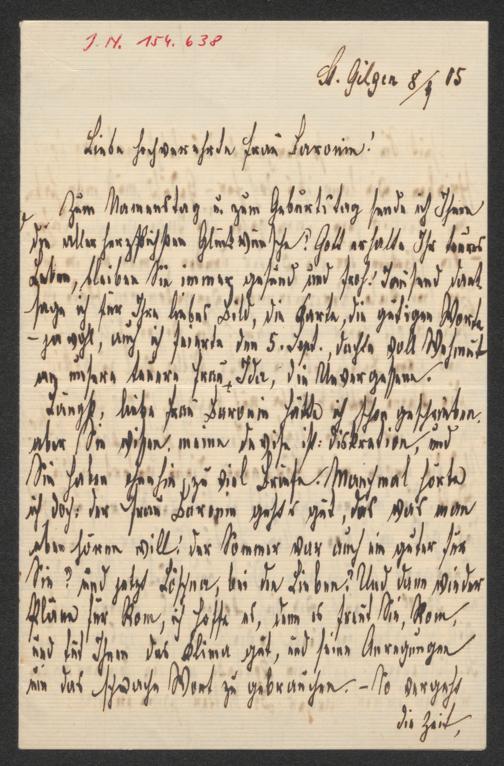 J.N. 154.638
St. Gilgen 8/9 05
Liebe hochverehrte Frau Baronin!
Zum Namenstag u. zum Geburtstag sende ich Ihnen
die allerherzlichsten Glückwünsche! Gott erhalte Ihr teures
Leben, bleiben Sie immer gesund und froh! Tausend Dank
sage ich für Ihr liebes Bild, die Karte, die gütigen Worte
– ja wohl, auch ich feierte den 5. Sept., dachte voll Wehmut
an unsere teuere Frau Ida, die Unvergessene.
Längst, liebe Frau Baronin hätte ich schon geschrieben,
aber Sie wissen, meine Devise ist: Diskretion, und
Sie haben ohnehin zu viel Briefe. Manchmal hörte
ich doch: der Frau Baronin geht's gut, das was man
eben hören will! Der Sommer war auch ein guter für
Sie? Und jetzt Löschna, bei den Lieben? Und dann wieder
Pläne für Rom, ich hoffe es, denn es freut Sie, Rom,
und tut Ihnen das Klima gut, und seine Anregungen
um das schwache Wort zu gebrauchen. – So vergeht
die Zeit,